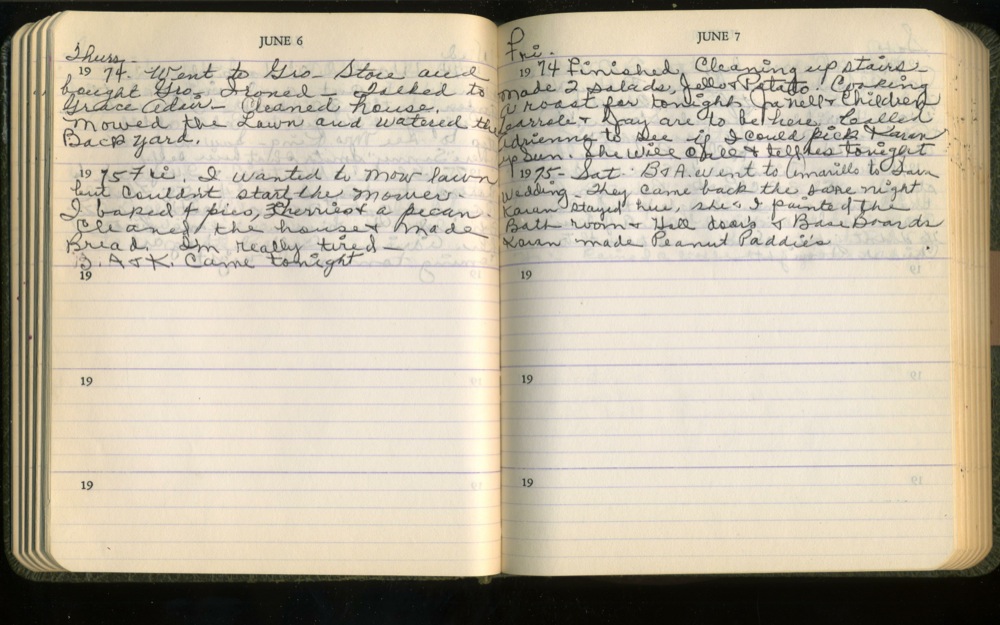 JUNE 6
Thurs.
1974. Went to Gro- Store and
bought Gro, Ironed - Talked to
Grace Adair - Cleaned house.
Mowed the Lawn and Watered the
Back yard.
1975 Fri. I wanted to mow lawn
but couldn't start the mower.
I baked 4 pies, 3 cherries & a pecan.
Cleaned the house & made
Bread. I'm really tired -
B. A & K. Came tonight
19
19
19
JUNE 7
Fri.
1974 Finished Cleaning up stairs -
Made 2 salads, Jello & Potato. Cooking
a roast for tonight. & Children
& are to be here. Called
to see if I could pick Karan
up Sun. She will call & tell us tonight
1975 - Sat. B & A. went to Amarillo to
Wedding. They came back the same night
Karan stayed here, she & I painted the
Bath room & Hall doors & Base Boards
Karan made Peanut Paddies
19
19
19